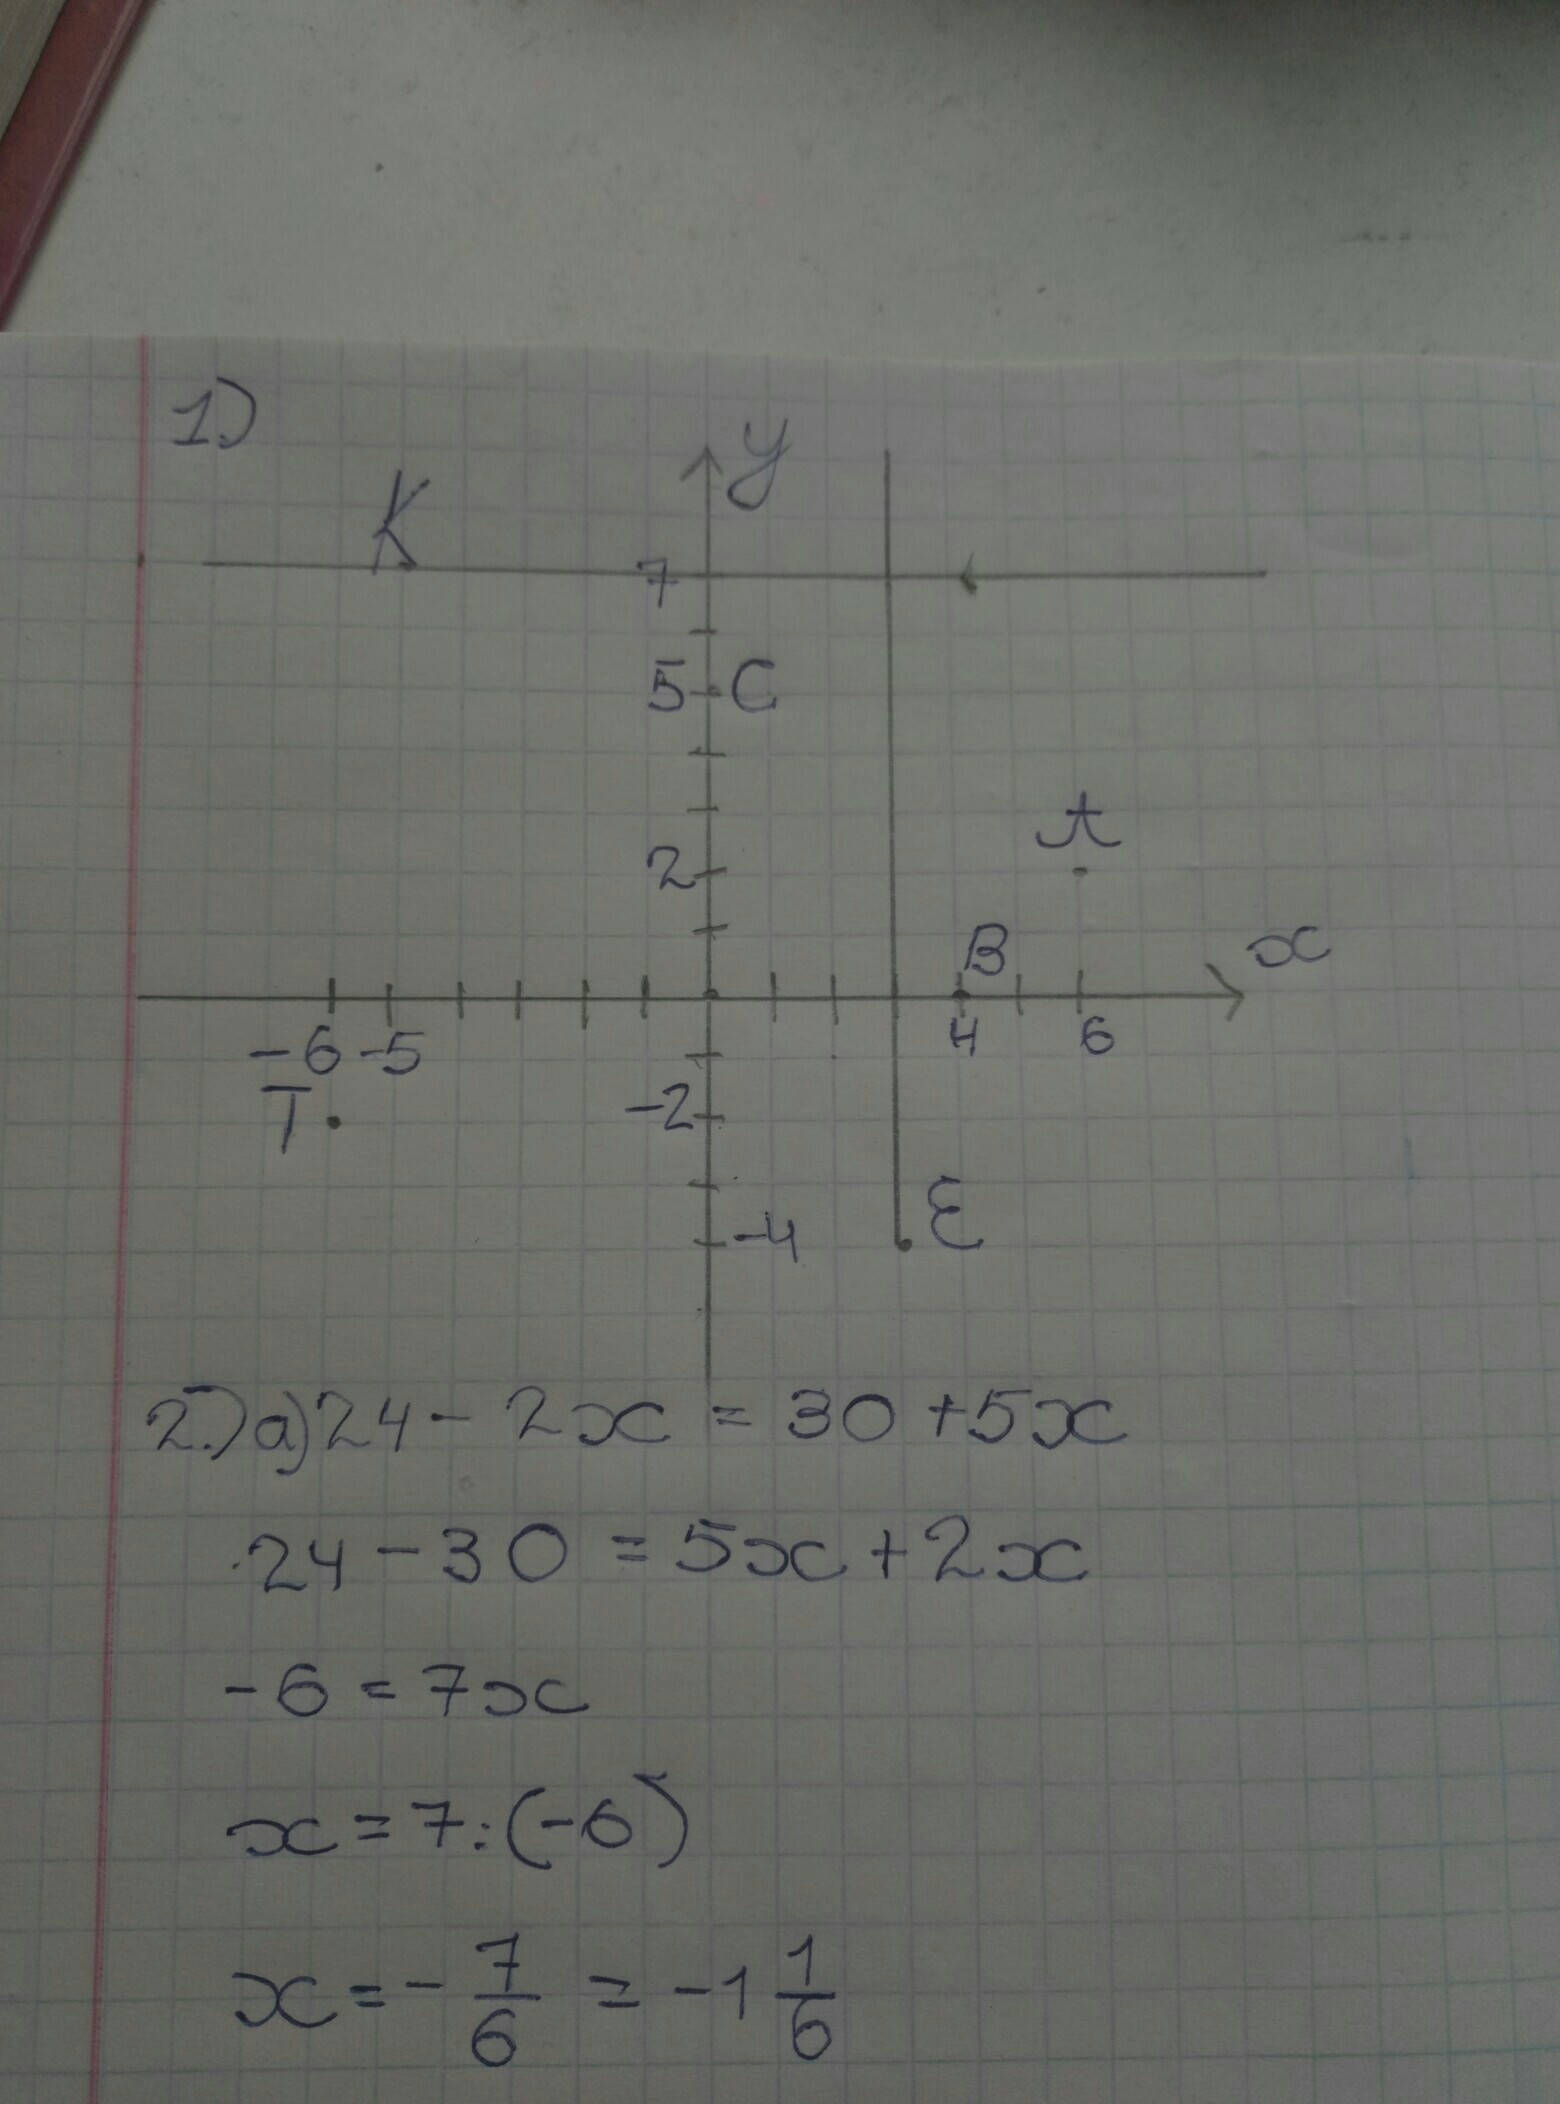 1)
y
K
7
5 C
A
2
B
x
-6 -5
4
6
T
-2
E
-4
2.) а) 24 - 2x = 30 + 5x
24 - 30 = 5x + 2x
-6 = 7x
x = 7 : (-6)
x = - 7/6 = -1 1/6